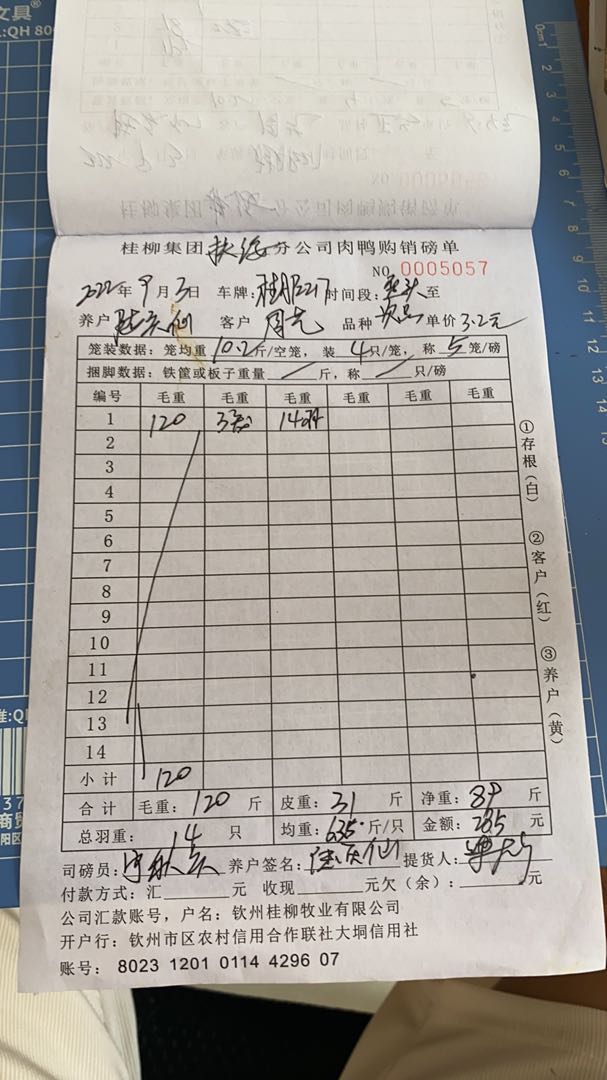 文具
:QH 80
0cm 1 2 3 4 5 6 7 8 9
桂柳集团扶绥分公司肉鸭购销磅单
NO 0005057
2022年9月3日 车牌:桂 217时间段: 至
养户 客户 品种 单价3.2元
笼装数据:笼均重10.2斤/空笼,装4只/笼,称5笼/磅
捆脚数据:铁筐或板子重量 斤,称 只/磅
编号 毛重 毛重 毛重 毛重 毛重 毛重
1 120 3 14羽
2
3
4
5
6
7
8
9
10
11
12
13
14
小计 120
合计 毛重:120斤 皮重:31斤 净重:89斤
总羽重:14只 均重:6.35斤/只 金额:285元
①存根(白) ②客户(红) ③养户(黄)
司磅员: 养户签名: 提货人:
付款方式:汇 元 收现 元欠(余): 元
公司汇款账号,户名:钦州桂柳牧业有限公司
开户行:钦州市区农村信用合作联社大垌信用社
账号: 8023 1201 0114 4296 07